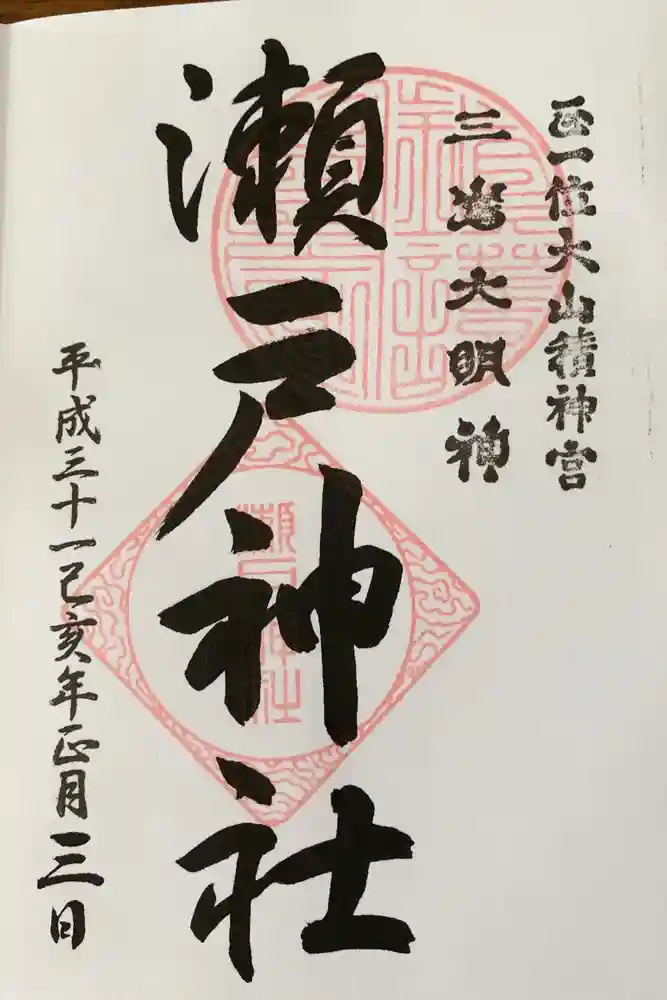 正一位大山積神宮
三嶌大明神
瀬戸神社
瀬戸神社
平成三十一己亥年正月三日